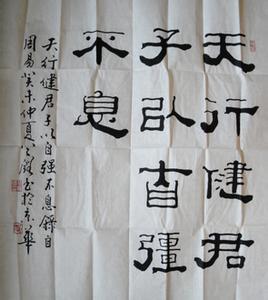 天行健君
子以自彊
不息
天行健君子以自强不息錄自
周易癸未仲夏於京華